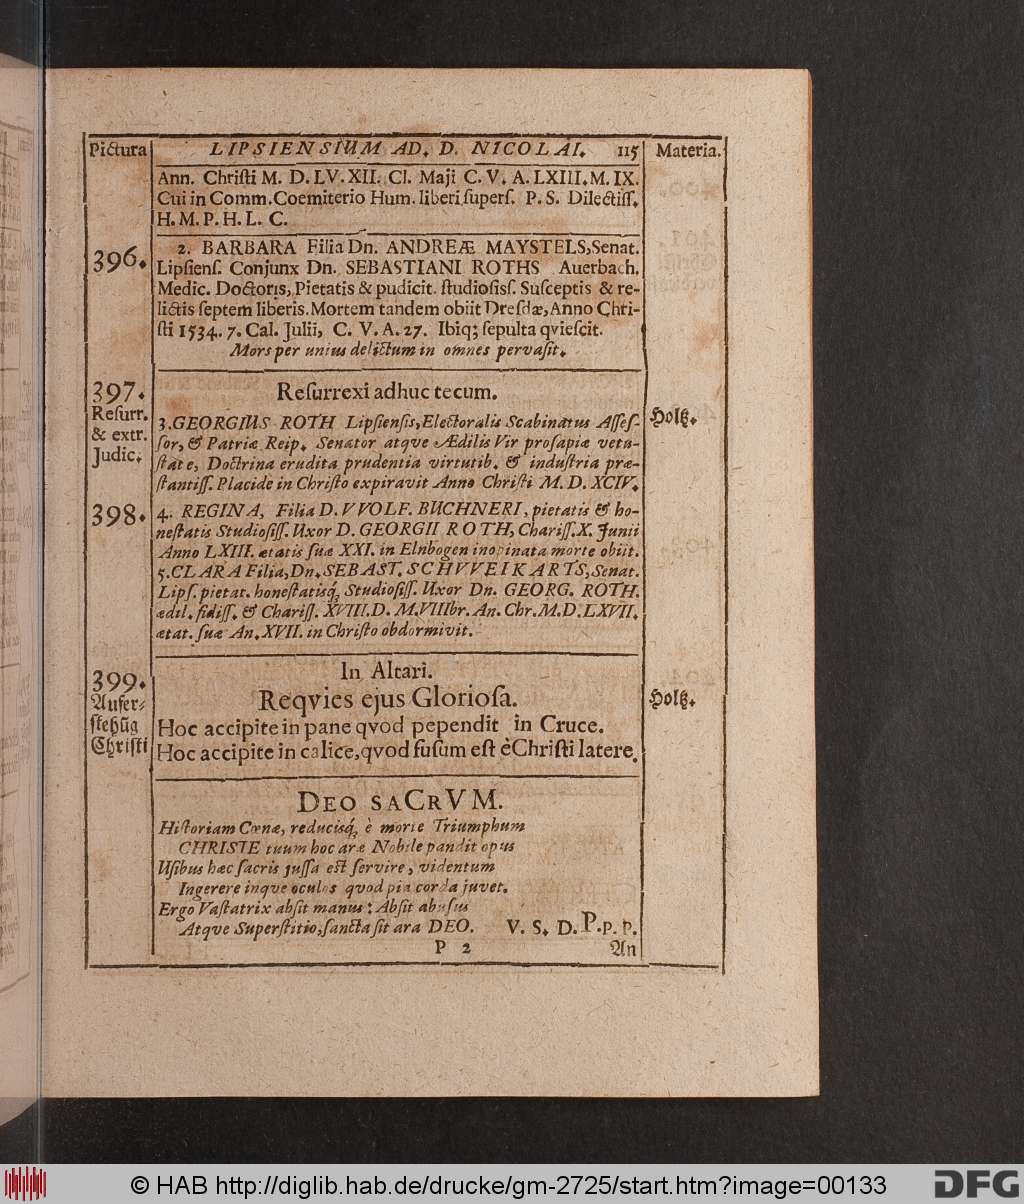 Pictura LIPSIENSIUM AD. D. NICOLAI. 115 Materia.
Ann. Chriſti M. D. LV. XII. Cl. Maji C. V. A. LXIII. M. IX.
Cui in Comm. Coemiterio Hum. liberi ſuperſ. P. S. Dilectiſſ.
H. M. P. H. L. C.
396.
2. BARBARA Filia Dn. ANDREÆ MAYSTELS, Senat.
Lipſienſ. Conjunx Dn. SEBASTIANI ROTHS Auerbach.
Medic. Doctoris, Pietatis & pudicit. ſtudioſiſs. Suſceptis & re-
lictis ſeptem liberis. Mortem tandem obiit Dreſdæ, Anno Chri-
ſti 1534. 7. Cal. Julii, C. V. A. 27. Ibiq; ſepulta qvieſcit.
Mors per unius delictum in omnes pervaſit.
397.
Reſurr.
& extr.
Judic.
Reſurrexi adhuc tecum.
Holtz.
3. GEORGIUS ROTH Lipſienſis, Electoralis Scabinatus Aſſeſ-
ſor, & Patriæ Reip. Senator atqve Ædilis Vir proſapiæ vetu-
ſtate, Doctrina erudita prudentia virtutib. & induſtria præ-
ſtantiſſ. Placide in Chriſto expiravit Anno Chriſti M. D. XCIV.
398.
4. REGINA, Filia D. VVOLF. BUCHNERI, pietatis & ho-
neſtatis Studioſiſſ. Uxor D. GEORGII ROTH, Chariſſ. X. Junii
Anno LXIII. ætatis ſuæ XXI. in Elnbogen inopinata morte obiit.
5. CLARA Filia, Dn. SEBAST. SCHVVEIKARTS, Senat.
Lipſ. pietat. honeſtatisq́; Studioſiſſ. Uxor Dn. GEORG. ROTH.
ædil. fidiſſ. & Chariſſ. XVIII. D. M. VIIIbr. An. Chr. M. D. LXVII.
ætat. ſuæ An. XVII. in Chriſto obdormivit.
399.
Aufer-
ſtehũg
Chriſti
In Altari.
Reqvies ejus Glorioſa.
Holtz.
Hoc accipite in pane qvod pependit in Cruce.
Hoc accipite in calice, qvod fuſum eſt è Chriſti latere.
DEO SACRVM.
Hiſtoriam Cœnæ, reducisq́; è morte Triumphum
CHRISTE tuum hoc aræ Nobile pandit opus
Uſibus hæc ſacris juſſa eſt ſervire, videntum
Ingerere inque oculos qvod pia corda juvet.
Ergo Vaſtatrix abſit manus: Abſit abuſus
Atqve Superſtitio, ſancta ſit ara DEO. V. S. D. P. P. P.
P 2 An
© HAB http://diglib.hab.de/drucke/gm-2725/start.htm?image=00133
DFG